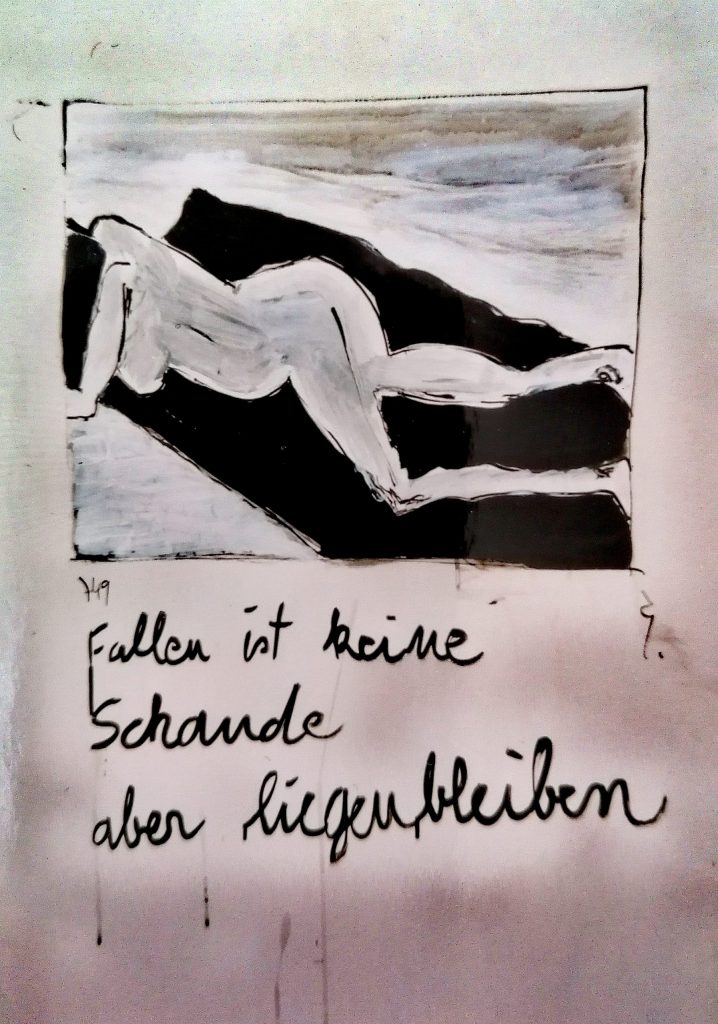 Fallen ist keine
Schande
aber liegenbleiben